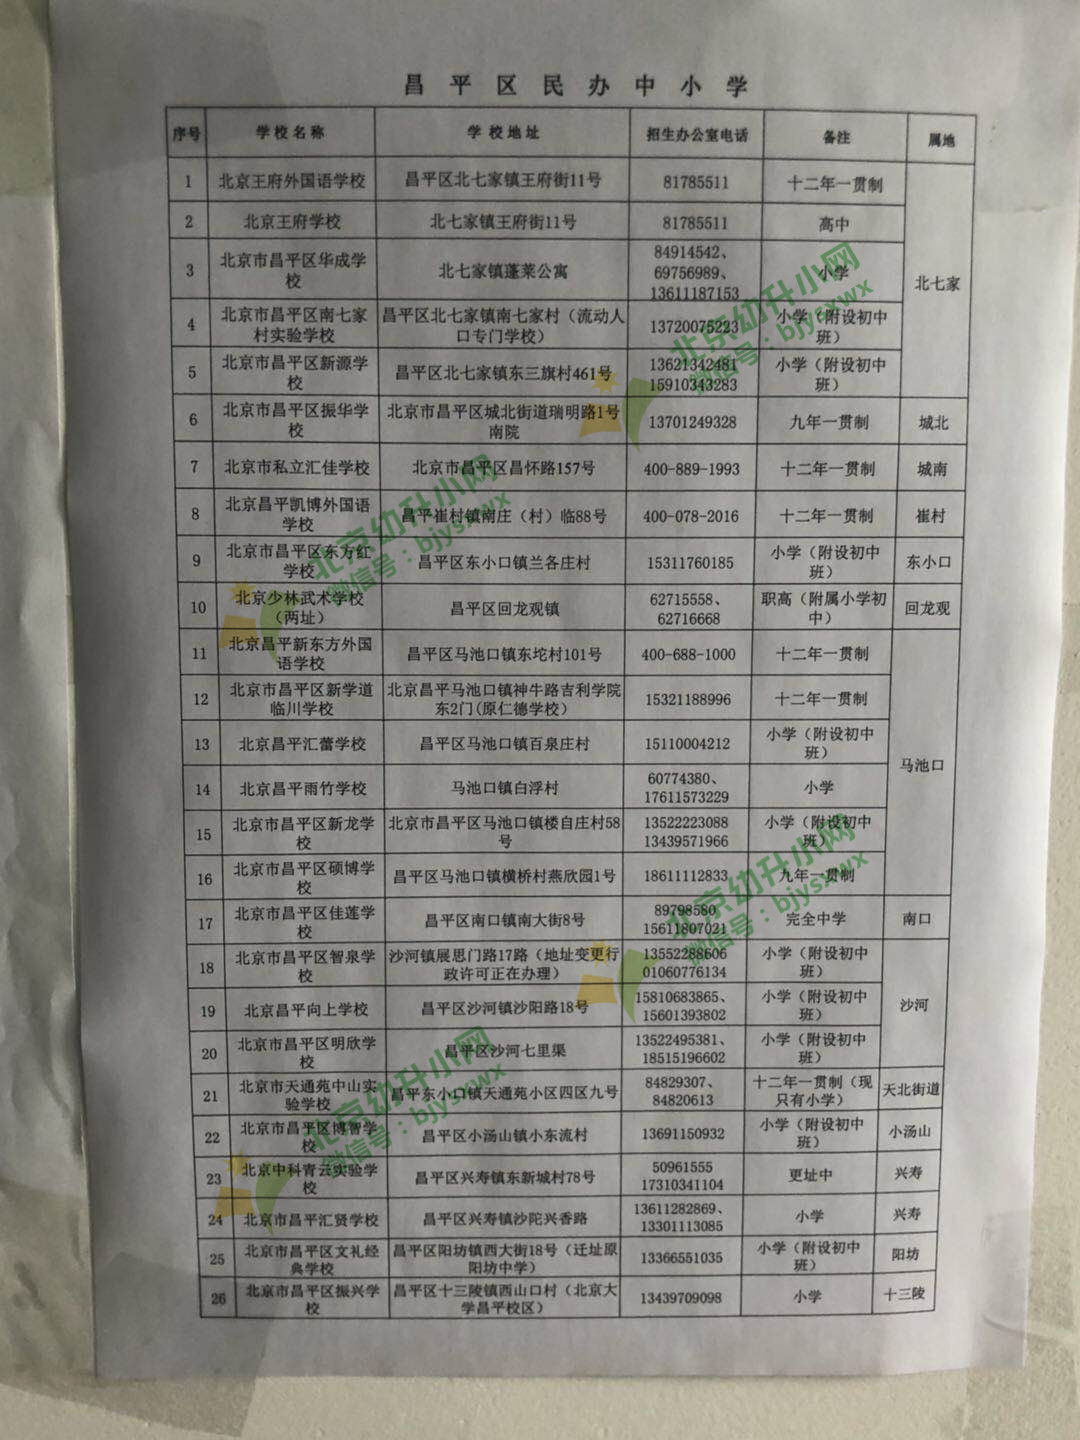 昌平区民办中小学
序号 学校名称 学校地址 招生办公室电话 备注 属地
1 北京王府外国语学校 昌平区北七家镇王府街11号 81785511 十二年一贯制
2 北京王府学校 北七家镇王府街11号 81785511 高中
3 北京市昌平区华成学校 北七家镇蓬莱公寓 84914542、69756989、13611187153 小学 北七家
4 北京市昌平区南七家村实验学校 昌平区北七家镇南七家村（流动人口专门学校） 13720075223 小学（附设初中班）
5 北京市昌平区新源学校 昌平区北七家镇东三旗村461号 13621342481 15910343283 小学（附设初中班）
6 北京市昌平区振华学校 北京市昌平区城北街道瑞明路1号南院 13701249328 九年一贯制 城北
7 北京市私立汇佳学校 北京市昌平区昌怀路157号 400-889-1993 十二年一贯制 城南
8 北京昌平凯博外国语学校 昌平崔村镇南庄（村）临88号 400-078-2016 十二年一贯制 崔村
9 北京市昌平区东方红学校 昌平区东小口镇兰各庄村 15311760185 小学（附设初中班） 东小口
10 北京少林武术学校（两址） 昌平区回龙观镇 62715558、62716668 职高（附属小学初中） 回龙观
11 北京昌平新东方外国语学校 昌平区马池口镇东坨村101号 400-688-1000 十二年一贯制
12 北京市昌平区新学道临川学校 北京昌平马池口镇神牛路吉利学院东2门(原仁德学校） 15321188996 十二年一贯制
13 北京昌平汇蕾学校 昌平区马池口镇百泉庄村 15110004212 小学（附设初中班） 马池口
14 北京昌平雨竹学校 马池口镇白浮村 60774380、17611573229 小学
15 北京市昌平区新龙学校 北京市昌平区马池口镇楼自庄村58号 13522223088 13439571966 小学（附设初中班）
16 北京市昌平区硕博学校 昌平区马池口镇横桥村燕欣园1号 18611112833 九年一贯制
17 北京市昌平区佳莲学校 昌平区南口镇南大街8号 89798580 15611807021 完全中学 南口
18 北京市昌平区智泉学校 沙河镇展思门路17路（地址变更行政许可正在办理） 13552288606 01060776134 小学（附设初中班）
19 北京昌平向上学校 昌平区沙河镇沙阳路18号 15810683865、15601393802 小学（附设初中班） 沙河
20 北京市昌平区明欣学校 昌平区沙河七里渠 13522495381、18515196602 小学（附设初中班）
21 北京市天通苑中山实验学校 昌平东小口镇天通苑小区四区九号 84829307、84820613 十二年一贯制（现只有小学） 天北街道
22 北京市昌平区博智学校 昌平区小汤山镇小东流村 13691150932 小学（附设初中班） 小汤山
23 北京中科青云实验学校 昌平区兴寿镇东新城村78号 50961555 17310341104 更址中 兴寿
24 北京市昌平汇贤学校 昌平区兴寿镇沙陀兴香路 13611282869、13301113085 小学 兴寿
25 北京市昌平区文礼经典学校 昌平区阳坊镇西大街18号（迁址原阳坊中学） 13366551035 小学（附设初中班） 阳坊
26 北京市昌平区振兴学校 昌平区十三陵镇西山口村（北京大学昌平校区） 13439709098 小学 十三陵
北京幼升小网
微信号：bjysxwx
北京幼升小网
微信号：bjysxwx
北京幼升小网
微信号：bjysxwx
北京幼升小网
微信号：bjysxwx